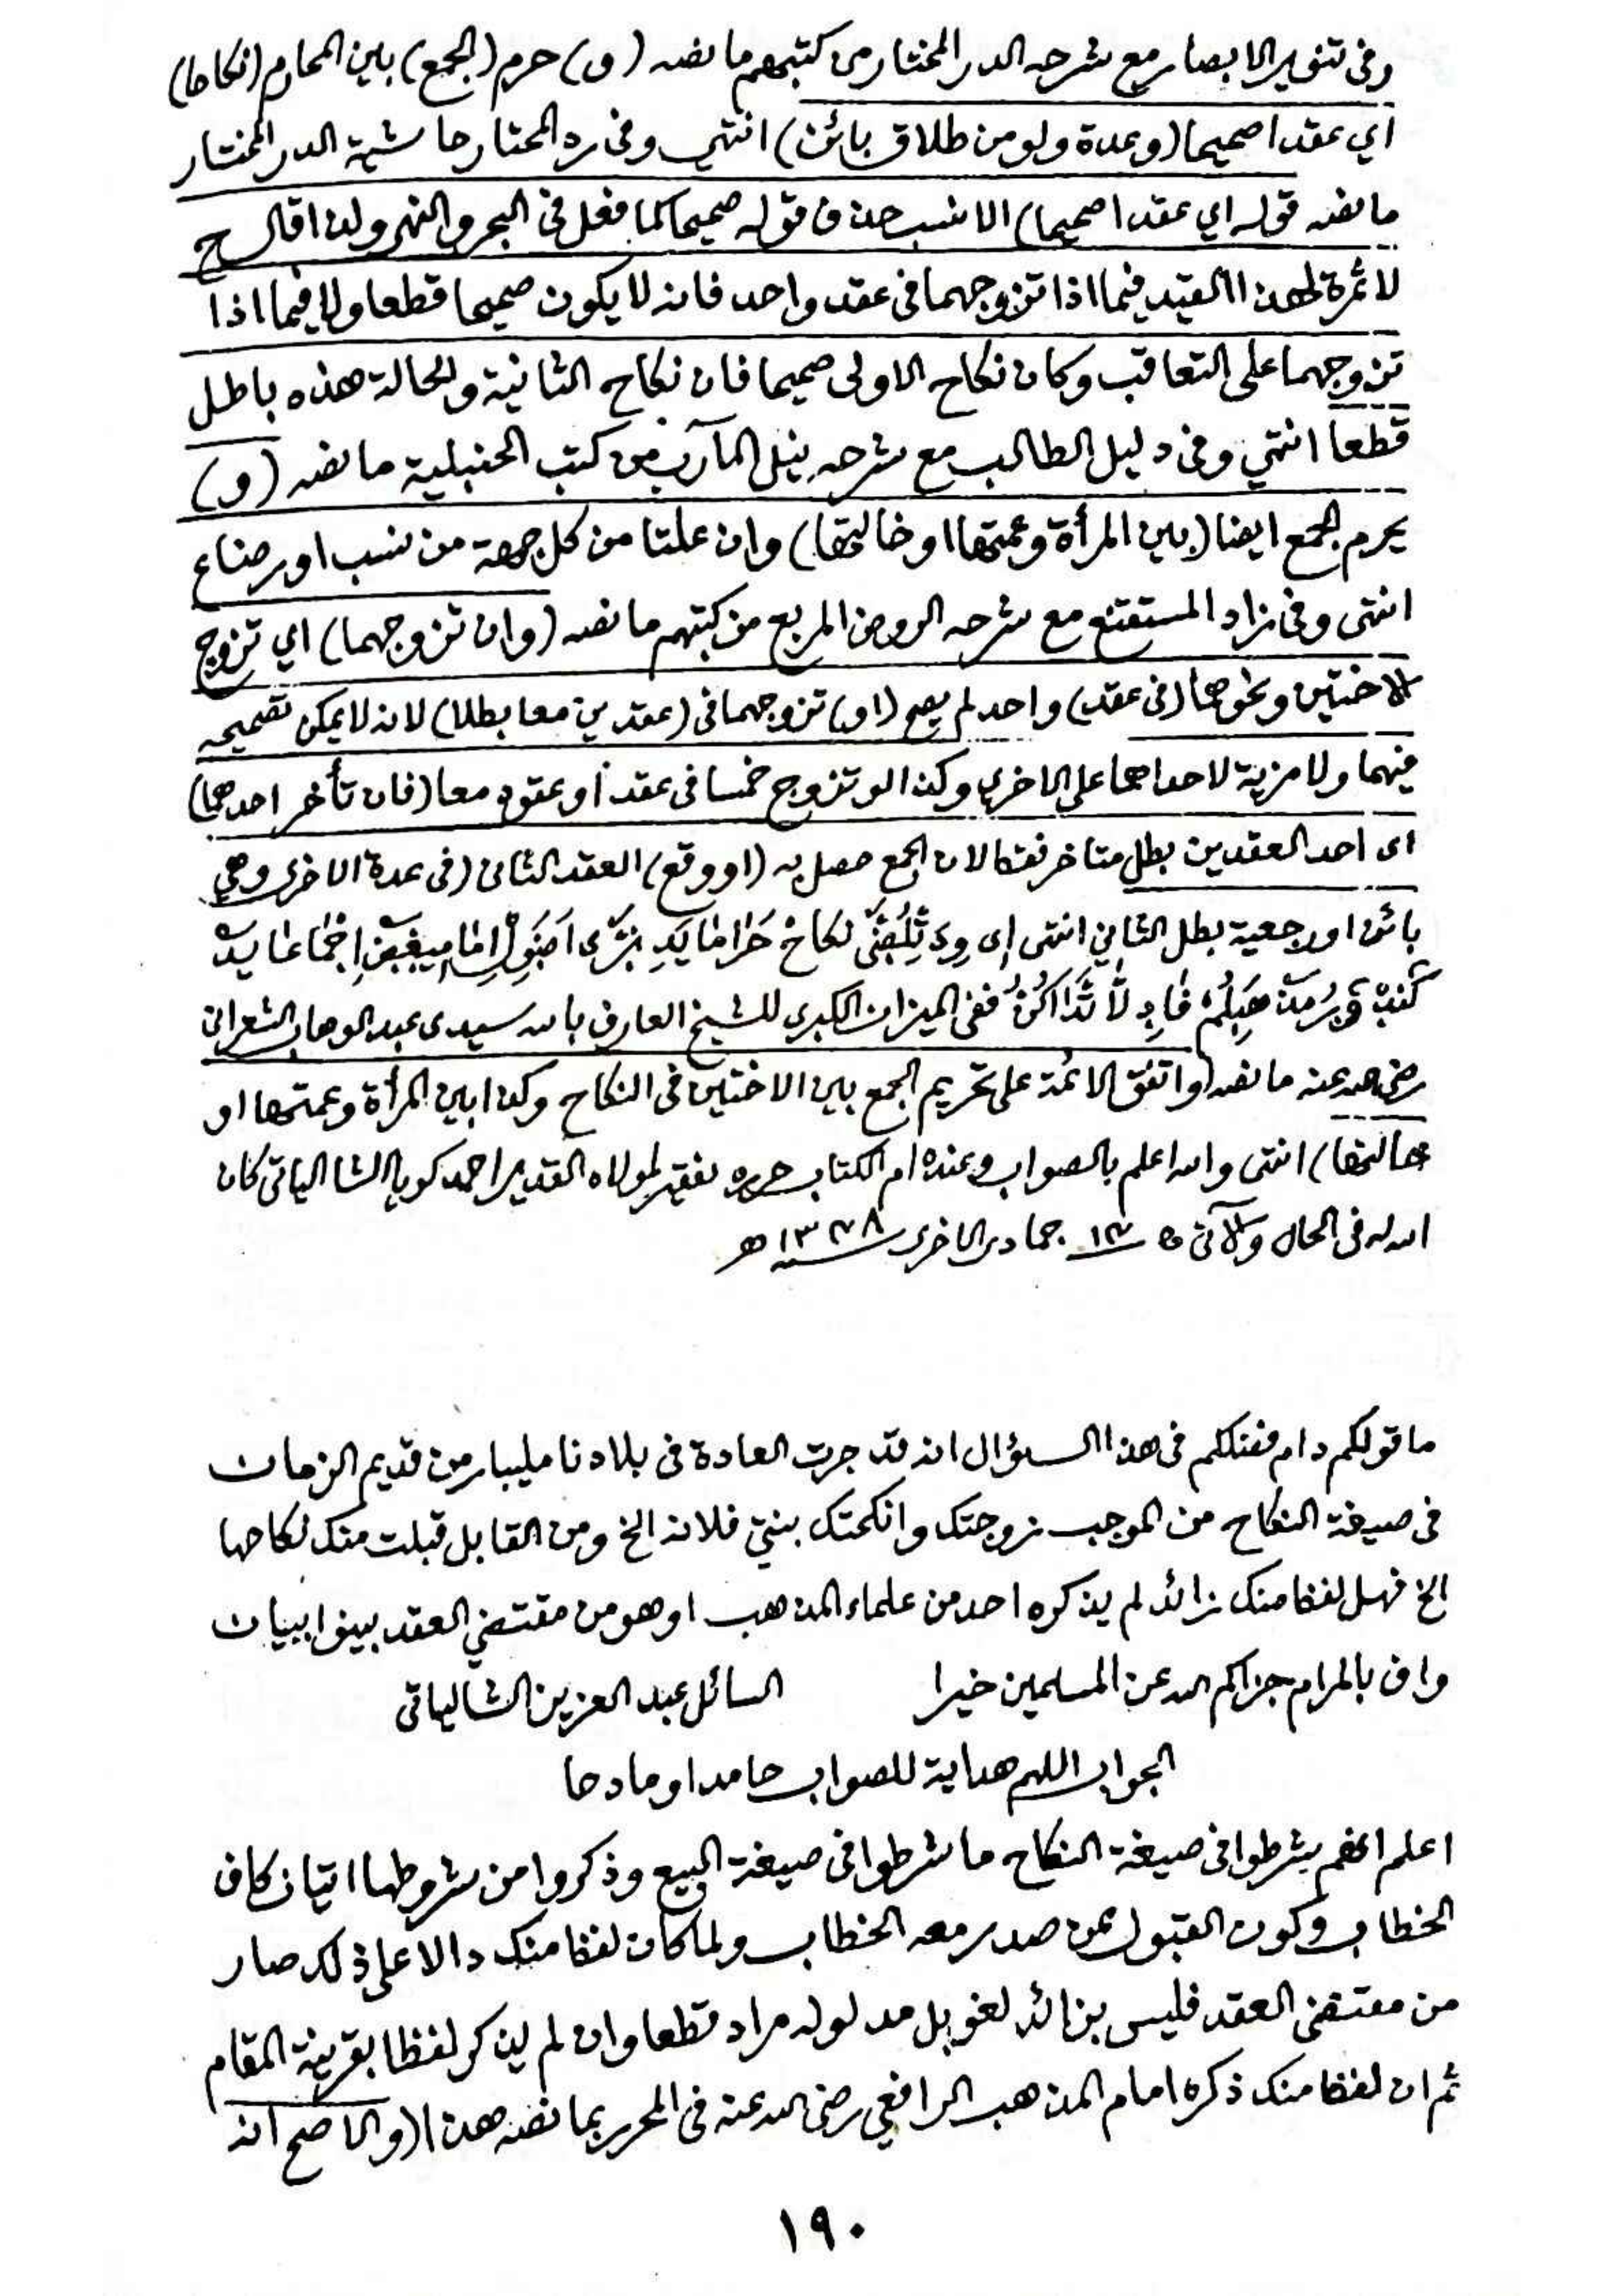 وفى تنوير الابصار مع شرحه الدر المختار من كتبهم ما نصه (و) حرم (الجمع) بين المحارم (نكاحا)
اي عقدا صحيحا (وعدة ولو من طلاق بائن) انتهى وفى رد المحتار حاشية الدر المختار
ما نصه قوله اي عقدا صحيحا) الانسب حذف قوله صحيحا كما فعل فى البحر والنهر ولذا قال ح
لا ثمرة لهذا القيد فيما اذا تزوجهما فى عقد واحد فانه لا يكون صحيحا قطعا ولا فيما اذا
تزوجهما على التعاقب وكان نكاح الاولى صحيحا فان نكاح الثانية والحالة هذه باطل
قطعا انتهي وفى دليل الطالب مع شرحه نيل المآرب من كتب الحنبلية ما نصه (و)
يحرم الجمع ايضا (بين المرأة وعمتها او خالتها) وان علتا من كل جهة من نسب او رضاع
انتهى وفى زاد المستقنع مع شرحه الروض المربع من كتبهم ما نصه (وان تزوجهما) اي تزوج
الاختين ونحوهما (فى عقد) واحد لم يصح (او) تزوجهما فى (عقدين معا بطلا) لانه لا يمكن تصحيحه
فيهما ولا مزية لاحداهما على الاخرى وكذا لو تزوج خمسا فى عقد أو عقود معا (فان تأخر احدهما)
اى احد العقدين بطل متأخر فقط لان الجمع حصل به (او وقع) العقد الثانى (فى عدة الاخرى وهي
بائن او رجعية بطل الثاني انتهى
ففى الميزان الكبرى للشيخ العارف بالله سيدى عبد الوهاب الشعرانى
رضي الله عنه ما نصه (واتفق الائمة على تحريم الجمع بين الاختين فى النكاح وكذا بين المرأة وعمتها او
خالتها) انتهى والله اعلم بالصواب وعنده ام الكتاب حرره فقير لمولاه القدير احمد كويا الشالياتى كان
الله له فى الحال والآتى جمادى الاخرى ھ
ما قولكم دام فضلكم فى هذا السؤال انه قد جرت العادة فى بلادنا مليبار من قديم الزمان
فى صيغة النكاح من الموجب زوجتك وانكحتك بنتي فلانة الخ ومن القابل قبلت منك نكاحها
الخ فهل لفظ منك زائد لم يذكره احد من علماء المذهب او هو من مقتضي العقد بينوا ببيان
واف بالمرام جزاكم الله عن المسلمين خيرا السائل عبد العزيز الشالياتى
الجواب اللهم هداية للصواب حامدا ومادحا
اعلم انهم شرطوا فى صيغة النكاح ما شرطوا فى صيغة البيع وذكروا من شروطها اتيان كاف
الخطاب وكون القبول ممن صدر معه الخطاب ولما كان لفظ منك دالا على ذلك صار
من مقتضى العقد فليس بزائد لغو بل مدلوله مراد قطعا وان لم يذكر لفظا بقرينة المقام
ثم ان لفظ منك ذكره امام المذهب الرافعي رضى الله عنه فى المحرر بما نصه هذا (والاصح انه
١٩٠